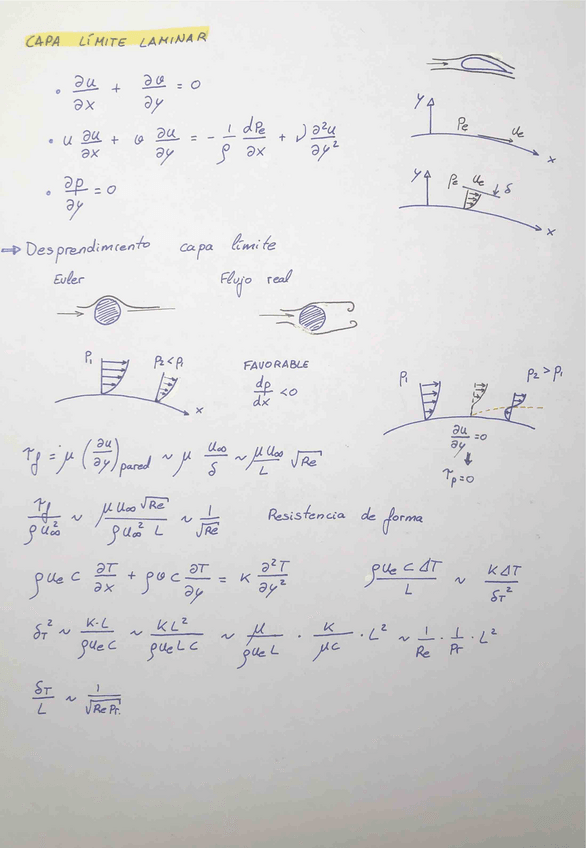 CAPA LÍMITE LAMINAR
• ∂u/∂x + ∂v/∂y = 0
• u ∂u/∂x + v ∂u/∂y = - 1/ρ dPe/∂x + ν ∂²u/∂y²
y Pe ue x
• ∂p/∂y = 0
y Pe ue δ x
⇒ Desprendimiento capa límite
Euler Flujo real
P1 P2 < P1 x
FAVORABLE
dp/dx < 0
P1 P2 > P1
∂u/∂y = 0
τp = 0
τf = μ (∂u/∂y)pared ~ μ u∞/δ ~ μ u∞/L √Re
τf/ρu∞² ~ μ u∞ √Re/ρ u∞² L ~ 1/√Re Resistencia de forma
ρ ue c ∂T/∂x + ρ v c ∂T/∂y = K ∂²T/∂y² ρ ue c ΔT/L ~ K ΔT/δT²
δT² ~ K·L/ρ ue c ~ K L²/ρ ue L c ~ μ/ρ ue L · K/μc · L² ~ 1/Re · 1/Pr · L²
δT/L ~ 1/√Re Pr.